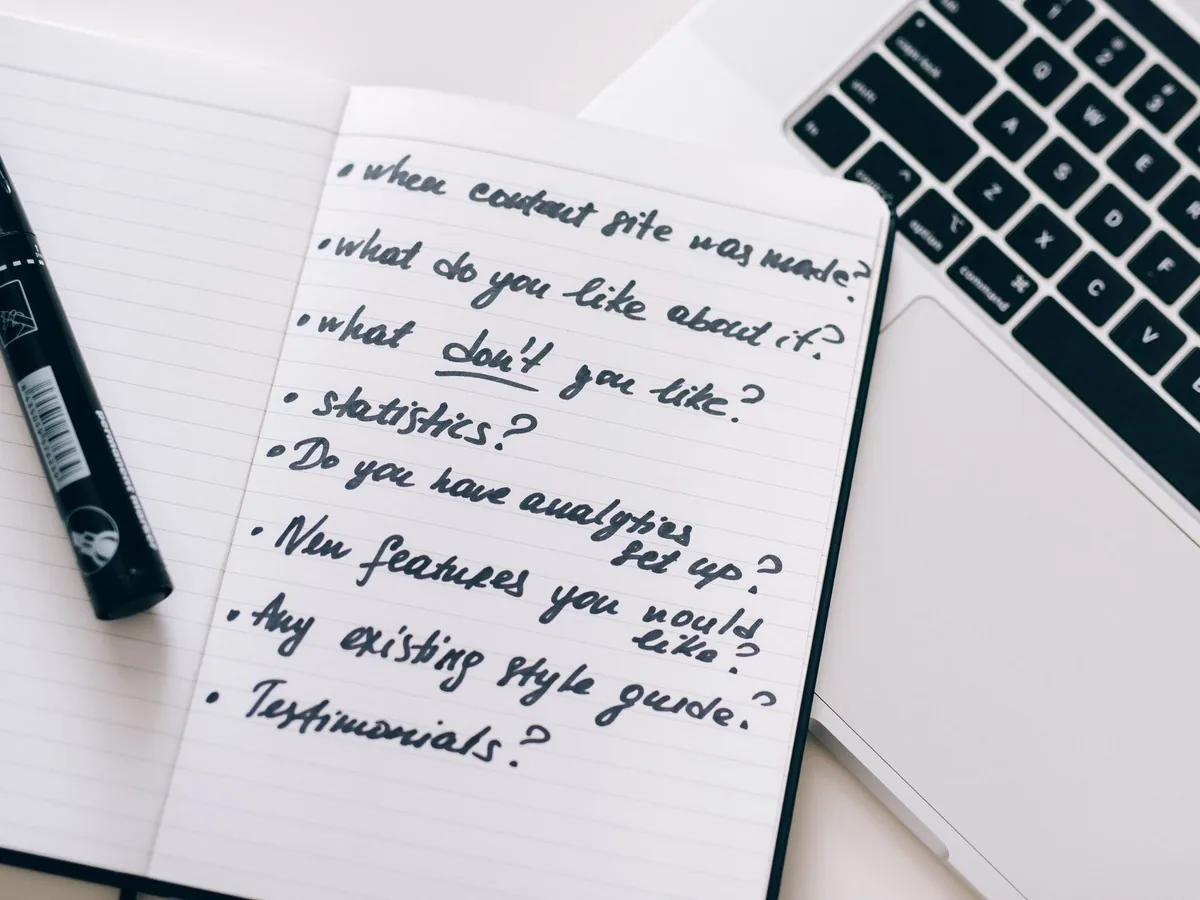 • when content site was made?
• what do you like about it?
• what don't you like?
• statistics?
• Do you have analytics
set up?
• New features you would
like?
• Any existing style guide?
• Testimonials?
permanent marker
caps lock
shift
fn
control
option
command
1
2
3
Q
W
E
A
S
D
F
Z
X
C
V